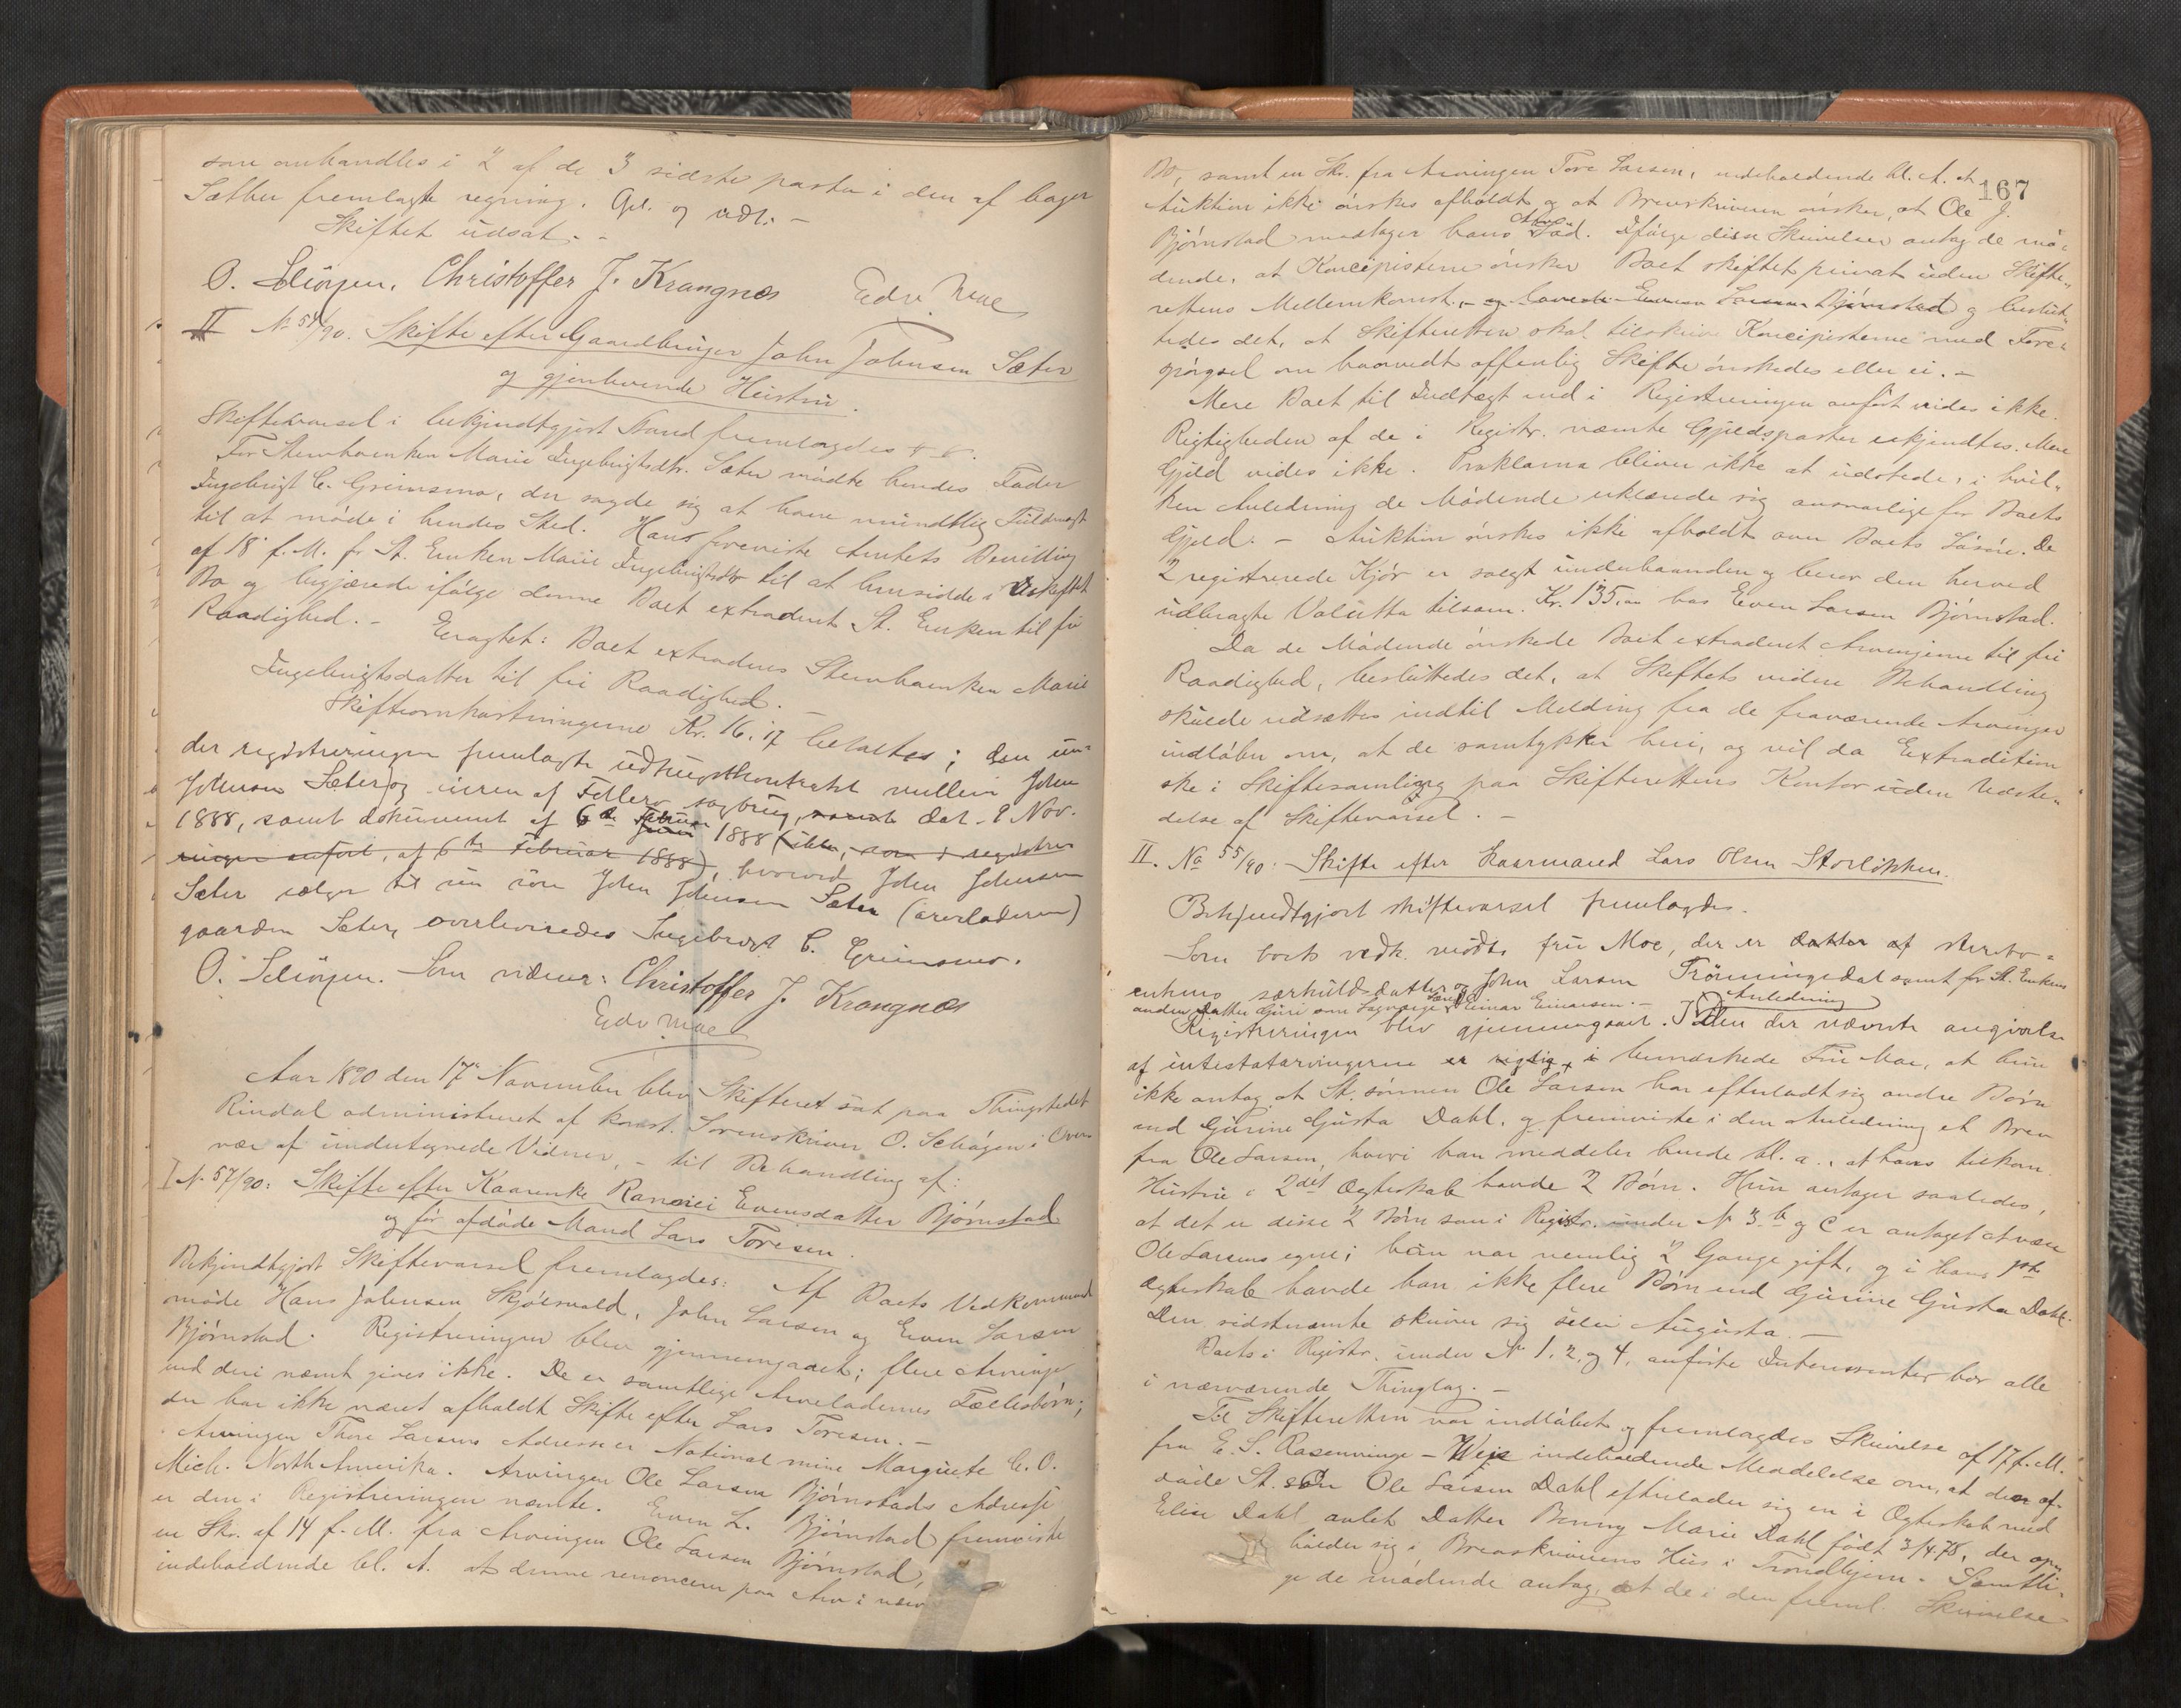 som omhandles i 2 af de 3 sidste poster i den af bager
Sæther fremlagte regning. Opl. og vedt. -
Skiftet udsat. -
O. Schøyen. Christoffer J. Krangnes Edv. Moe
II No 54/90. Skifte efter Gaardbruger John Johnsen Sæter
og gjenlevende Hustru.
Skiftevarsel i bekjendtgjort Stand fremlagdes
For Stervboenken Marie Ingebrigtsdtr. Sæter mødte hendes Fader
Ingebrigt C. Grimsmo, der sagde sig at have mundtlig Fuldmagt
til at møde i hendes Sted. Han foreviste Amtets Bevilling
af 18 f. M. for St. Enken Marie Ingebrigtsdtr til at hensidde i uskiftet
Bo og begjærede ifølge denne Boet extraderet St. Enken til fri
Raadighed. - Eragtet: Boet extraderes Stervboenken Marie
Ingebrigtsdatter til fri Raadighed. -
Skifteomkostningerne Kr. 16.17 betaltes; den un-
der registreringen fremlagte udtugtskontrakt mellem John
Johnsen Sæter og eieren af Fellers sagbrug, dat. 9 Nov.
1888, samt dokument af 6te Februar 1888 (ikke, som i registre
ringen anført, af 6te Februar 1888), hvorved John Johnsen
Sæter sælger til sin søn John Johnsen Sæter (arveladeren)
gaarden Sæter, overleveredes Ingebrigt C. Grimsmo.
O. Schøyen. Som vidner: Christoffer J. Krangnes
Edv Moe
Aar 1890 den 17de November blev Skifteret sat paa Thingstedet
Rindal administreret af konst. Sorenskriver O. Schøyen i Over
vær af undertegnede Vidner, - til Behandling af:
I No 57/90: Skifte efter Kaarenke Ranvei Evensdatter Bjørnstad
og før afdøde Mand Lars Toresen.
Bekjendtgjort Skiftevarsel fremlagdes: Af Boets Vedkommend
møde Hans Johnsen Skjølsvold, John Larsen og Even Larsen
Bjørnstad. Registreringen blev gjennemgaaet; flere Arvinger
end deri nævnt gives ikke. De er samtlige Arveladernes Fællesbørn;
der har ikke været afholdt Skifte efter Lars Toresen. -
Arvingen Thore Larsens Adresse er National mine Marquete C. O.
Mich. North Amerika. Arvingen Ole Larsen Bjørnstads Adresse
er den i Registreringen nævnte. Even L. Bjørnstad fremviste
en Skr. af 14 f. M. fra Arvingen Ole Larsen Bjørnstad,
indeholdende bl. A. at denne renoncerer paa Arv i nærv
167
Bo, samt en Skr. fra Arvingen Tore Larsen, indeholdende bl. A. at
Auktion ikke ønskes afholdt og at Brevskriveren ønsker, at Ole J.
Bjørnstad modtager hans Arvelod. Ifølge disse Skrivelser antog de mø-
dende, at Koncipisterne ønsker Boet skiftet privat uden Skifte-
rettens Mellemkomst, - og lovede Even Larsen Bjørnstad og beslut-
tedes det, at Skifteretten skal tilskrive Koncipisterne med Fore-
spørgsel om hvorvidt offentlig Skifte ønskedes eller ei. -
Mere Boet til Indtægt end i Registreringen anført vides ikke.
Rigtigheden af de i Registr. nævnte Gjældsposter erkjendtes. Mere
Gjeld vides ikke. Proklama bliver ikke at udstede, i hvil-
ken Anledning de Mødende erklærede sig ansvarlige for Boets
Gjeld. - Auktion ønskes ikke afholdt over Boets Løsøre. De
2 registrerede Kjør er solgt underhaanden og beror den herved
udbragte Valutta tilsam. Kr. 135,00 hos Even Larsen Bjørnstad.
Da de Mødende ønskede Boet extraderet Arvingerne til fri
Raadighed, besluttedes det, at Skiftets videre Behandling
skulde udsættes indtil Melding fra de fraværende Arvinger
indløber om, at de samtykker heri, og vil da Extradition
ske i Skiftesamling paa Skifterettens Kontor uden Udste-
delse af Skiftevarsel. -
II. No 55/90. Skifte efter Kaarmand Lars Olsen Storløkken.
Bekjendtgjort skiftevarsel fremlagdes.
Som boets vedk. mødte fru Moe, der er datter af stervbo-
enkens særkuldsdatter og John Larsen Trønningsdal samt for St. Enkens
anden Datter Guri som Lagværge Lars Einar Einarsen. -
Registreringen blev gjennemgaaet. I Anledning den der nævnte angivelse
af intestatarvingerne er rigtig, i bemærkede Fru Moe, at hun
ikke antog at St. sønnen Ole Larsen har efterladt sig andre Børn
end Gurine Gusta Dahl, og fremviste i den Anledning et Brev
fra Ole Larsen, hvori han meddeler hende bl. a., at hans tilkom.
Hustru i 2det Ægteskab havde 2 Børn. Hun antager saaledes,
at det er disse 2 Børn som i Registr. under No 3 b og c er antaget at være
Ole Larsens egne; han var nemlig 2 Gange gift, og i hans 1ste
Ægteskab havde han ikke flere Børn end Gurine Gusta Dahl.
Den sidstnævnte skriver sig selv Augusta. -
Boets i Registr. under No 1, 2, og 4, anførte Interessenter bor alle
i nærværende Thinglag. -
Til Skifteretten var indløbet og fremlagdes Skrivelse af 17 f. M.
fra E. S. Rosenvinge - Weje indeholdende Meddelelse om, at den af-
døde St. søn Ole Larsen Dahl efterlader sig en i Ægteskab med
Elise Dahl avlet Datter Benny Marie Dahl født 3/4 78, der op-
holder sig i Brevskriverens Hus i Trondhjem. - Samtli-
ge de mødende antog, at de i den freml. Skrivelse